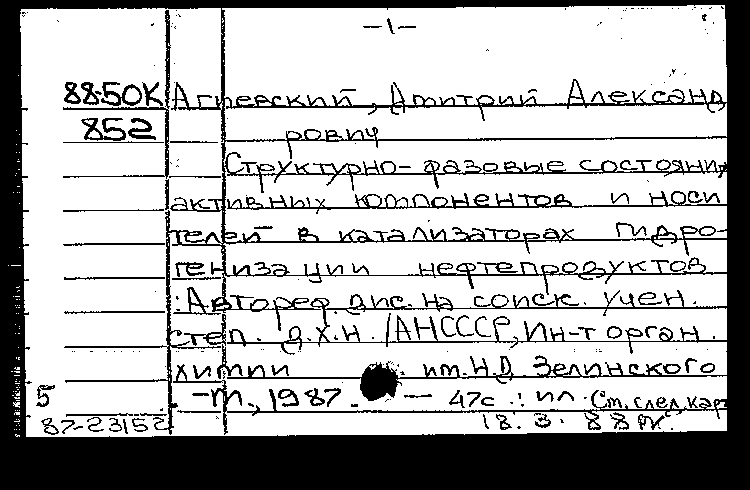 —1—
88-50К Агиевский, Дмитрий Александ
852 рович
Структурно-фазовые состояния
активных компонентов и носи
телей в катализаторах гидро-
генизации нефтепродуктов
: Автореф. дис. на соиск. учен.
степ. д.х.н. /АНСССР, Ин-т орган.
химии им. Н.Д. Зелинского
5 . -М., 1987. — 47с. : ил. Ст. след. кар
87-23152 18. 3. 88